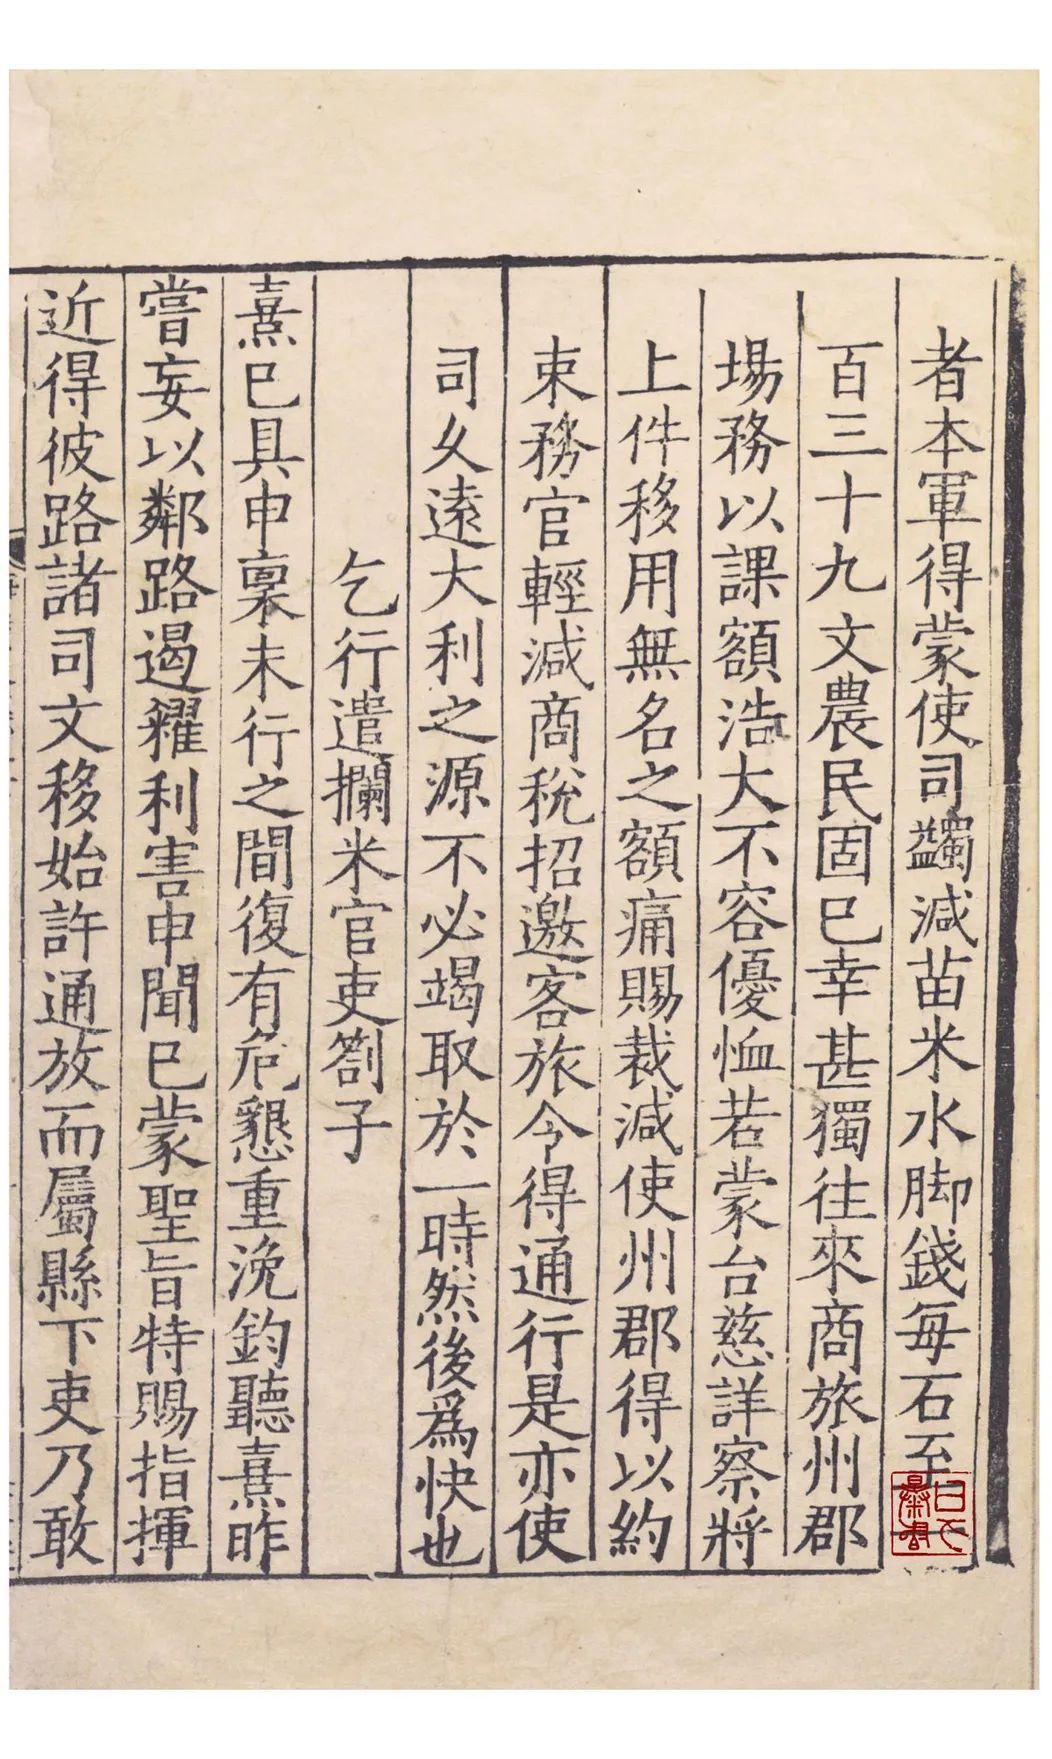 者本軍得蒙使司蠲減苗米水脚錢每石至
百三十九文農民固已幸甚獨往來商旅州郡
場務以課額浩大不容優恤若蒙台慈詳察將
上件移用無名之額痛賜裁減使州郡得以約
束務官輕減商稅招邀客旅令得通行是亦使
司久遠大利之源不必竭取於一時然後爲快也
乞行遣攔米官吏劄子
熹已具申稟未行之間復有危懇重浼鈞聽熹昨
嘗妄以鄰路遏糴利害申聞已蒙聖旨特賜指揮
近得彼路諸司文移始許通放而屬縣下吏乃敢